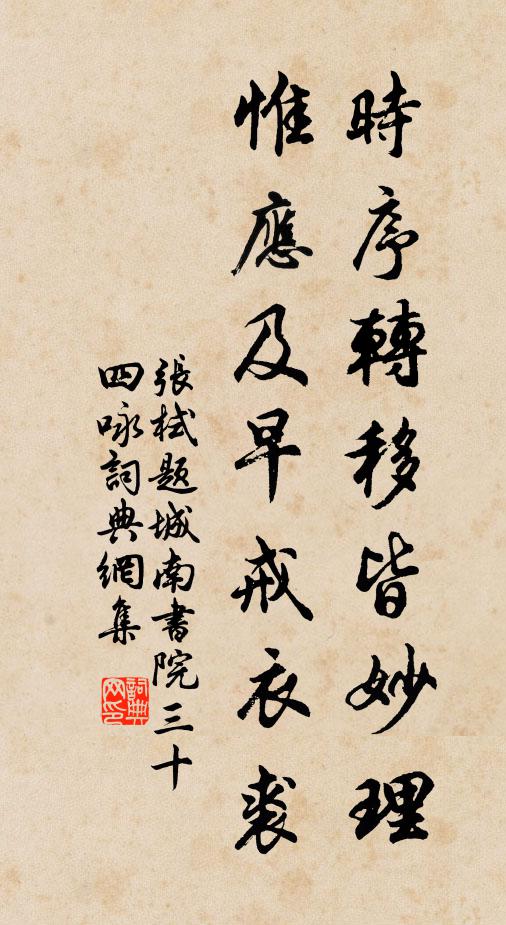 時序轉移皆妙理
惟應及早戒衣裘
張栻題城南書院三十
四咏詞典網集
詞典網印